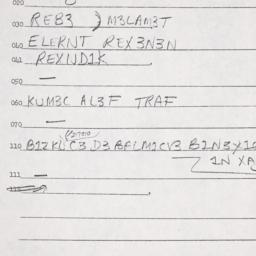 020
030 REB3 } M3LAM3T
040 ELERNT REX3N3N
041 REXUD1K
050 —
060 KUM3C AL3F TRAF
070 —
110 B1ZKUC3 D3 BFLM1CV3 B1N3X1
1N XA
111 —